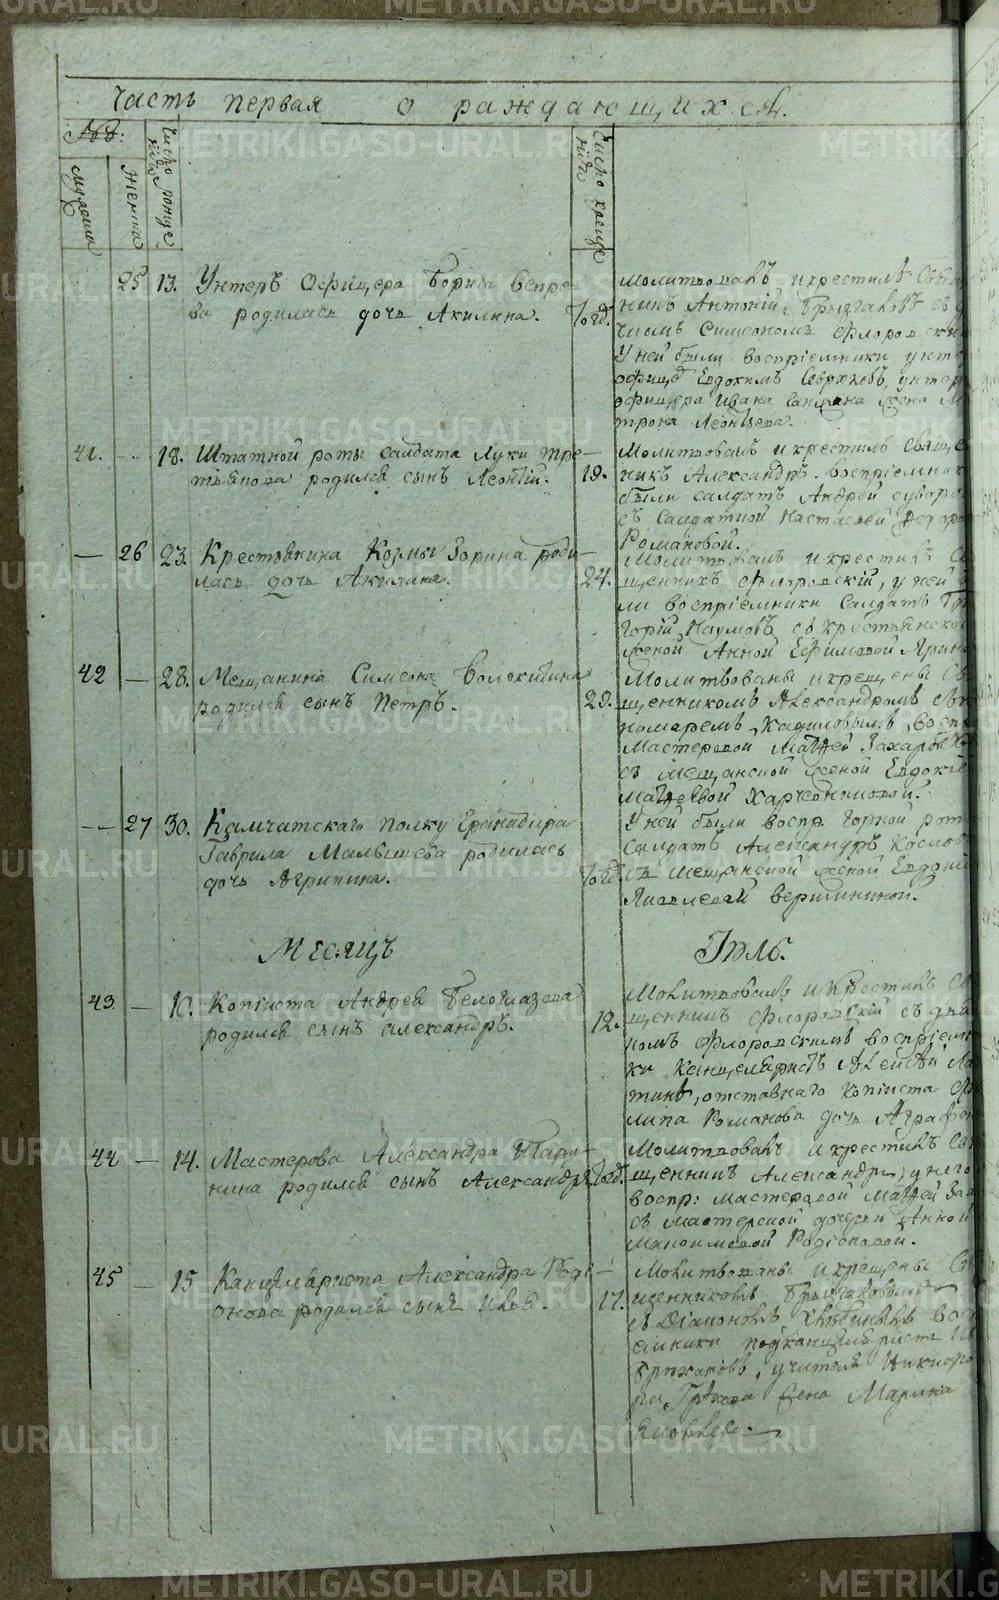 Часть первая о раждающихся.
№д:
мужеска
женска
Число рожде
нія
Число креще
нія
25 13. Унтеръ Офицера Бориса Вепре-
ва родилась дочь Акилина.
Тогд.
молитвовалъ и крестилъ Свящ
никъ Антоній Брызгаловъ съ
Симеономъ Флоровски
У ней были воспріемники унт
офицеръ Евдокимъ Севрюковъ, унтер
офицера Ивана жена М
трона Леонтьева.
41. 18. Штатной роты салдата Луки Тре-
тьякова родился сынъ Леонтій.
19.
Молитвовалъ и крестилъ Свяще
никъ Александръ. воспріемник
были салдатъ Андрей Суворо
съ Салдаткой Настасьей Ѳедоро
Романовой.
26 23. Крестьянина Козмы Зорина роди-
лась дочь Акилина.
24.
Молитвовалъ и крестилъ Св
щенникъ Флоровскій, у ней б
ли воспріемники Салдатъ Гри
горій Наумовъ съ крестьянской
женой Анной Ефимовой
42 28. Мещанина Симеона Волокитина
родился сынъ Петръ.
29.
Молитвованы и крещены Свя
щенникомъ Александромъ съ
номаремъ Кадиловымъ, воспр
Мастеровой Матѳей Захаровъ
съ мещанской женой Евдокіе
Матѳевой Харчевниковой.
27 30. Камчатскаго полку Гранадира
Гаврила Малышева родилась
дочь Агрипина.
Тогд.
У ней были воспр Горной рот
Салдатъ Александръ Косков
съ мещанской женой Евдокіе
Яковлевой Вершининой.
Месяцъ Іюль.
43. 10. Копіиста Андрея Белоглазова
родился сынъ Александръ.
12.
Молитвовалъ и Крестилъ Св
щенникъ Флоровскій съ дья
комъ Флоровскимъ воспріемн
ки Канцеляристъ Алексѣй Ла
тинъ, отставнаго Копіиста Фи
липа Романова дочь Аграфен
44 14. Мастерова Александра Тару-
нина родился сынъ Александръ
Тогд.
Молитвовалъ и крестилъ Свя
щенникъ Александръ, у него
воспр: мастеровой Матѳей Зах
съ мастерской дочерью Анной
Максимовой Родіоновой.
45 15. Канцеляриста Александра Роді-
онова родился сынъ Илья.
17.
Молитвованы и крещены Свя
щенникомъ Брызгаловымъ
съ Діакономъ Хлѣбинымъ Вос
емники подканцеляристъ Ив
учителя Никифо
ра жена Марина
Яковлева.
METRIKI.GASO-URAL.RU